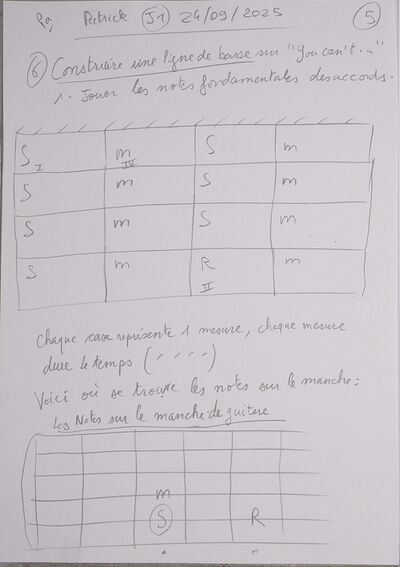 Patrick J1 24/09/2025 5
6 Construire une ligne de basse sur "You can't..."
1. Jouer les notes fondamentales des accords.
S I m IV S m
S m S m
S m S m
S m R II m
Chaque case représente 1 mesure, chaque mesure
dure temps (////)
Voici où se trouve les notes sur le manche:
Les Notes sur le manche de guitare
m
S R